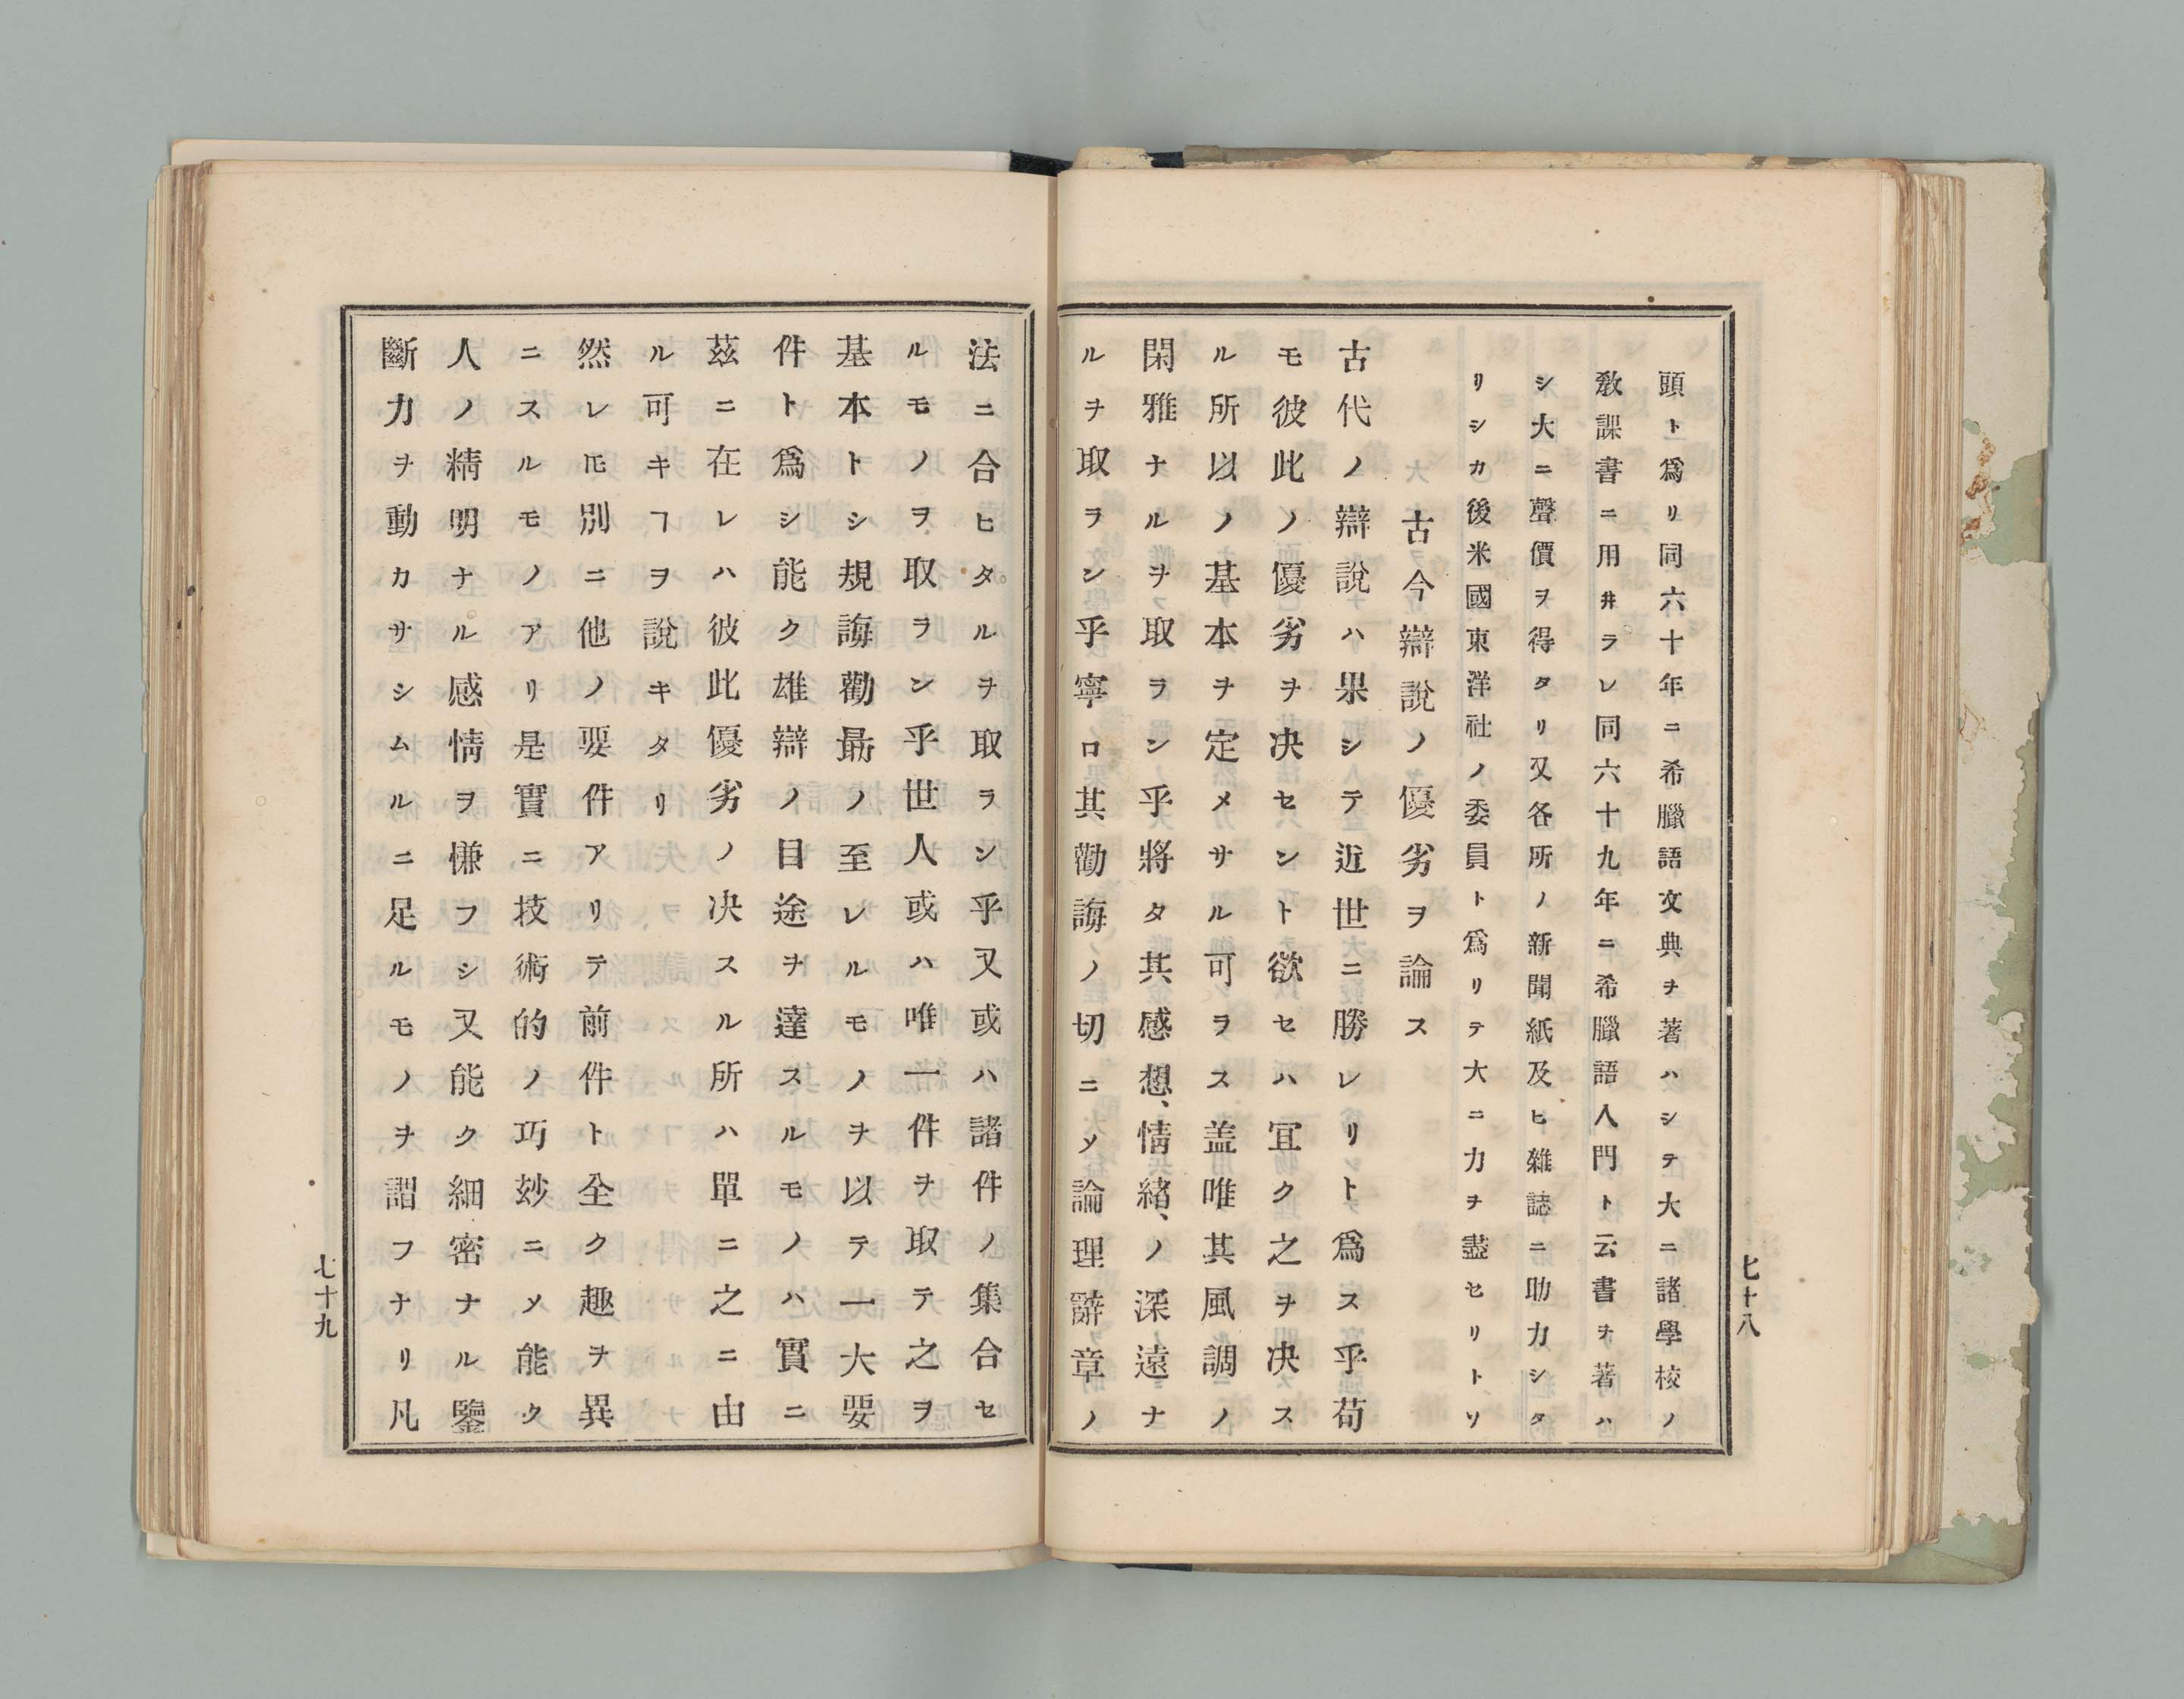 頭ト爲リ同六十年ニ希臘語文典ヲ著ハシテ大ニ諸學校ノ
敎課書ニ用井ラレ同六十九年ニ希臘語入門ト云書ヲ著ハ
シ大ニ聲價ヲ得タリ又各所ノ新聞紙及ヒ雜誌ニ助力シタ
リシカ後米國東洋社ノ委員ト爲リテ大ニ力ヲ盡セリトソ
古今辯說ノ優劣ヲ論ス
古代ノ辯說ハ果シテ近世ニ勝レリト爲ス乎苟
モ彼此ノ優劣ヲ决セント欲セハ宜ク之ヲ决ス
ル所以ノ基本ヲ定メサル可ラス盖唯其風調ノ
閑雅ナルヲ取ラン乎將タ其感想、情緒、ノ深遠ナ
ルヲ取ラン乎寧ロ其勸誨ノ切ニメ論理辭章ノ
七十八
法ニ合ヒタルヲ取ラシ乎又或ハ諸件ノ集合セ
ルモノヲ取ラン乎世人或ハ唯一件ヲ取テ之ヲ
基本トシ規誨勸勗ノ至レルモノヲ以テ一大要
件ト爲シ能ク雄辯ノ目途ヲ達スルモノハ實ニ
茲ニ在レハ彼此優劣ノ决スル所ハ單ニ之ニ由
ル可キヿヲ說キタリ
然レ𪜈別ニ他ノ要件アリテ前件ト全ク趣ヲ異
ニスルモノアリ是實ニ技術的ノ巧玅ニメ能ク
人ノ精明ナル感情ヲ慊フシ又能ク細密ナル鑒
斷力ヲ動カサシムルニ足ルモノヲ謂フナリ凡
七十九